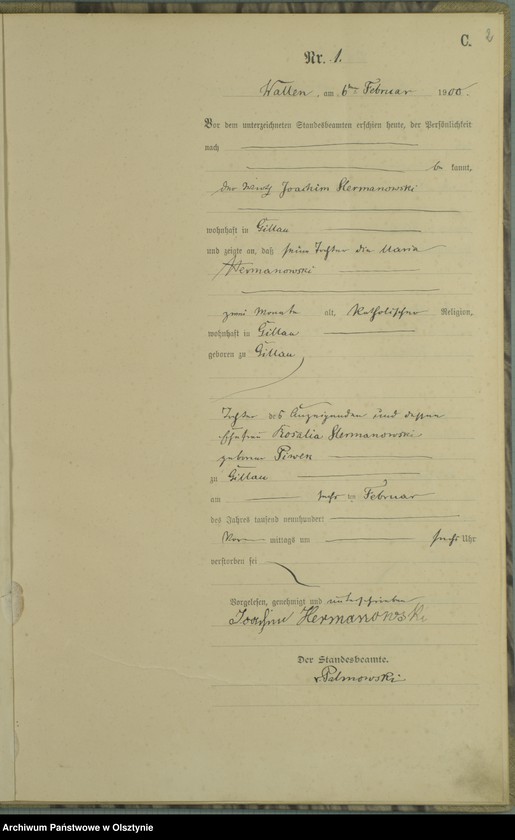 C. 2
Nr. 1.
Wallen, am 6ten Februar 1900.
Vor dem unterzeichneten Standesbeamten erschien heute, der Persönlichkeit
nach
be kannt,
der Wirth Joachim Hermanowski
wohnhaft in Gillau
und zeigte an, daß seine Tochter die Maria
Hermanowski
zwei Monate alt, katholischer Religion,
wohnhaft in Gillau
geboren zu Gillau
Tochter des Anzeigenden und dessen
Ehefrau Rosalia Hermanowski
geborene Piwek
zu Gillau
am sechsten Februar
des Jahres tausend neunhundert
Vor mittags um sechs Uhr
verstorben sei
Vorgelesen, genehmigt und unterschrieben
Joachim Hermanowski
Der Standesbeamte.
v. Palmowski
Archiwum Państwowe w Olsztynie